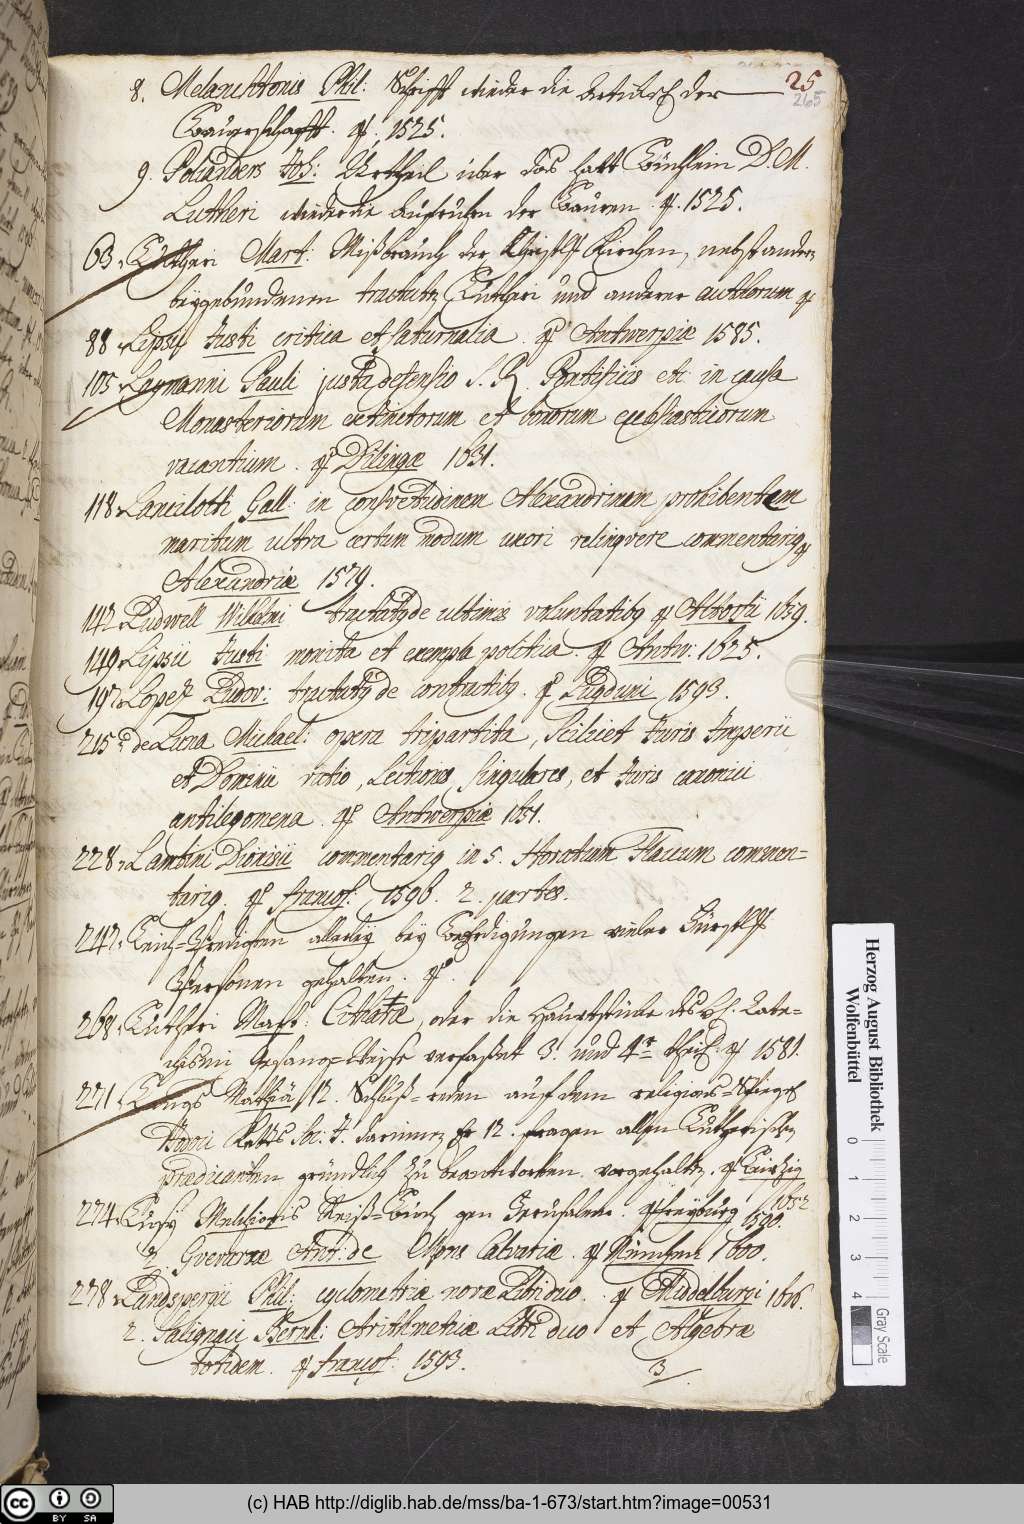 25
265
8. Melanchtonis Phil: Schrifft wieder die Artickel der
Bauerschafft. 4. 1525.
9. Polianders Joh: Urtheil über das hart Büchlein D. M.
Lutheri wieder die Aufruhren der Bauren. 4. 1525.
63. Lutheri Mart. Mißbrauch der Christl. Kirchen, nebst andern
beygebundenen tractatn Lutheri und anderer authorum 4
88. Lipsij Justi critica et Saturnalia. 4 Antwerpiæ 1585.
105. Laymanni Pauli justa defensio S. R. Pontificis etc in causa
Monasteriorum extinctorum et bonorum ecclesiasticorum
vacantium. 4 Dilingæ 1631.
118. Lancilotti Gall: in consvetudinem Alexandrinam prohibentem
maritum ultra certum modum uxori relinqvere commentarig 4
Alexandriæ 1579.
142. Ludwell Wilhelmi tractatg de ultimis voluntatibg 4 Altdorfii 1659.
149. Lipsii Justi monita et exempla politica. 4 Antw: 1625.
197. Lopez Ludov: tractatg de contractibg. 4 Lugduni 1593.
215. de Luna Michael: opera tripartita, Scilicet Juris Imperii
et Dominii ratio, Lectiones Singulares, et Juris canonici
antilegomena. 4 Antwerpiæ 1651.
228. Lambini Dionisii commentarig in Q. Horatium Flaccum commen-
tarig. 4 francof: 1596. 2. partes.
242. Leich-Predigten allerley bey Behrdigungen vieler Fürstl.
Personen gehalten. 4.
268. Lutheri Mart: Cithara, oder die Hauptstücke des H. Cate-
chismi Gesangs-Weise verfaßet 3. und 4te theil. 4 1581.
271. Mathiä 12. Schluß-reden auf dem religions-Spiegel
Soc: J. darinnen Er 12. fragen allen Lutherischn
Prædicanten gründlich zu beantworten vorgehaltn. 4 Leipzig
1652
274. Lussy Melchioris Reiß-Buch gen Jerusalem. 4 freyburg 1590.
2. Gvevarræ Ant: de Mons Calvariæ. 4 München 1600.
278. Landspergii Phil: cyclometriæ novæ Libri duo. 4 Middelburgi 1616.
2. Salignaci Bernh: Arithmeticæ Libri duo et Algebræ
totidem. 4 francof. 1593. 3
Herzog August Bibliothek
Wolfenbüttel
0 1 2 3 4
Gray Scale
cc BY SA
(c) HAB http://diglib.hab.de/mss/ba-1-673/start.htm?image=00531